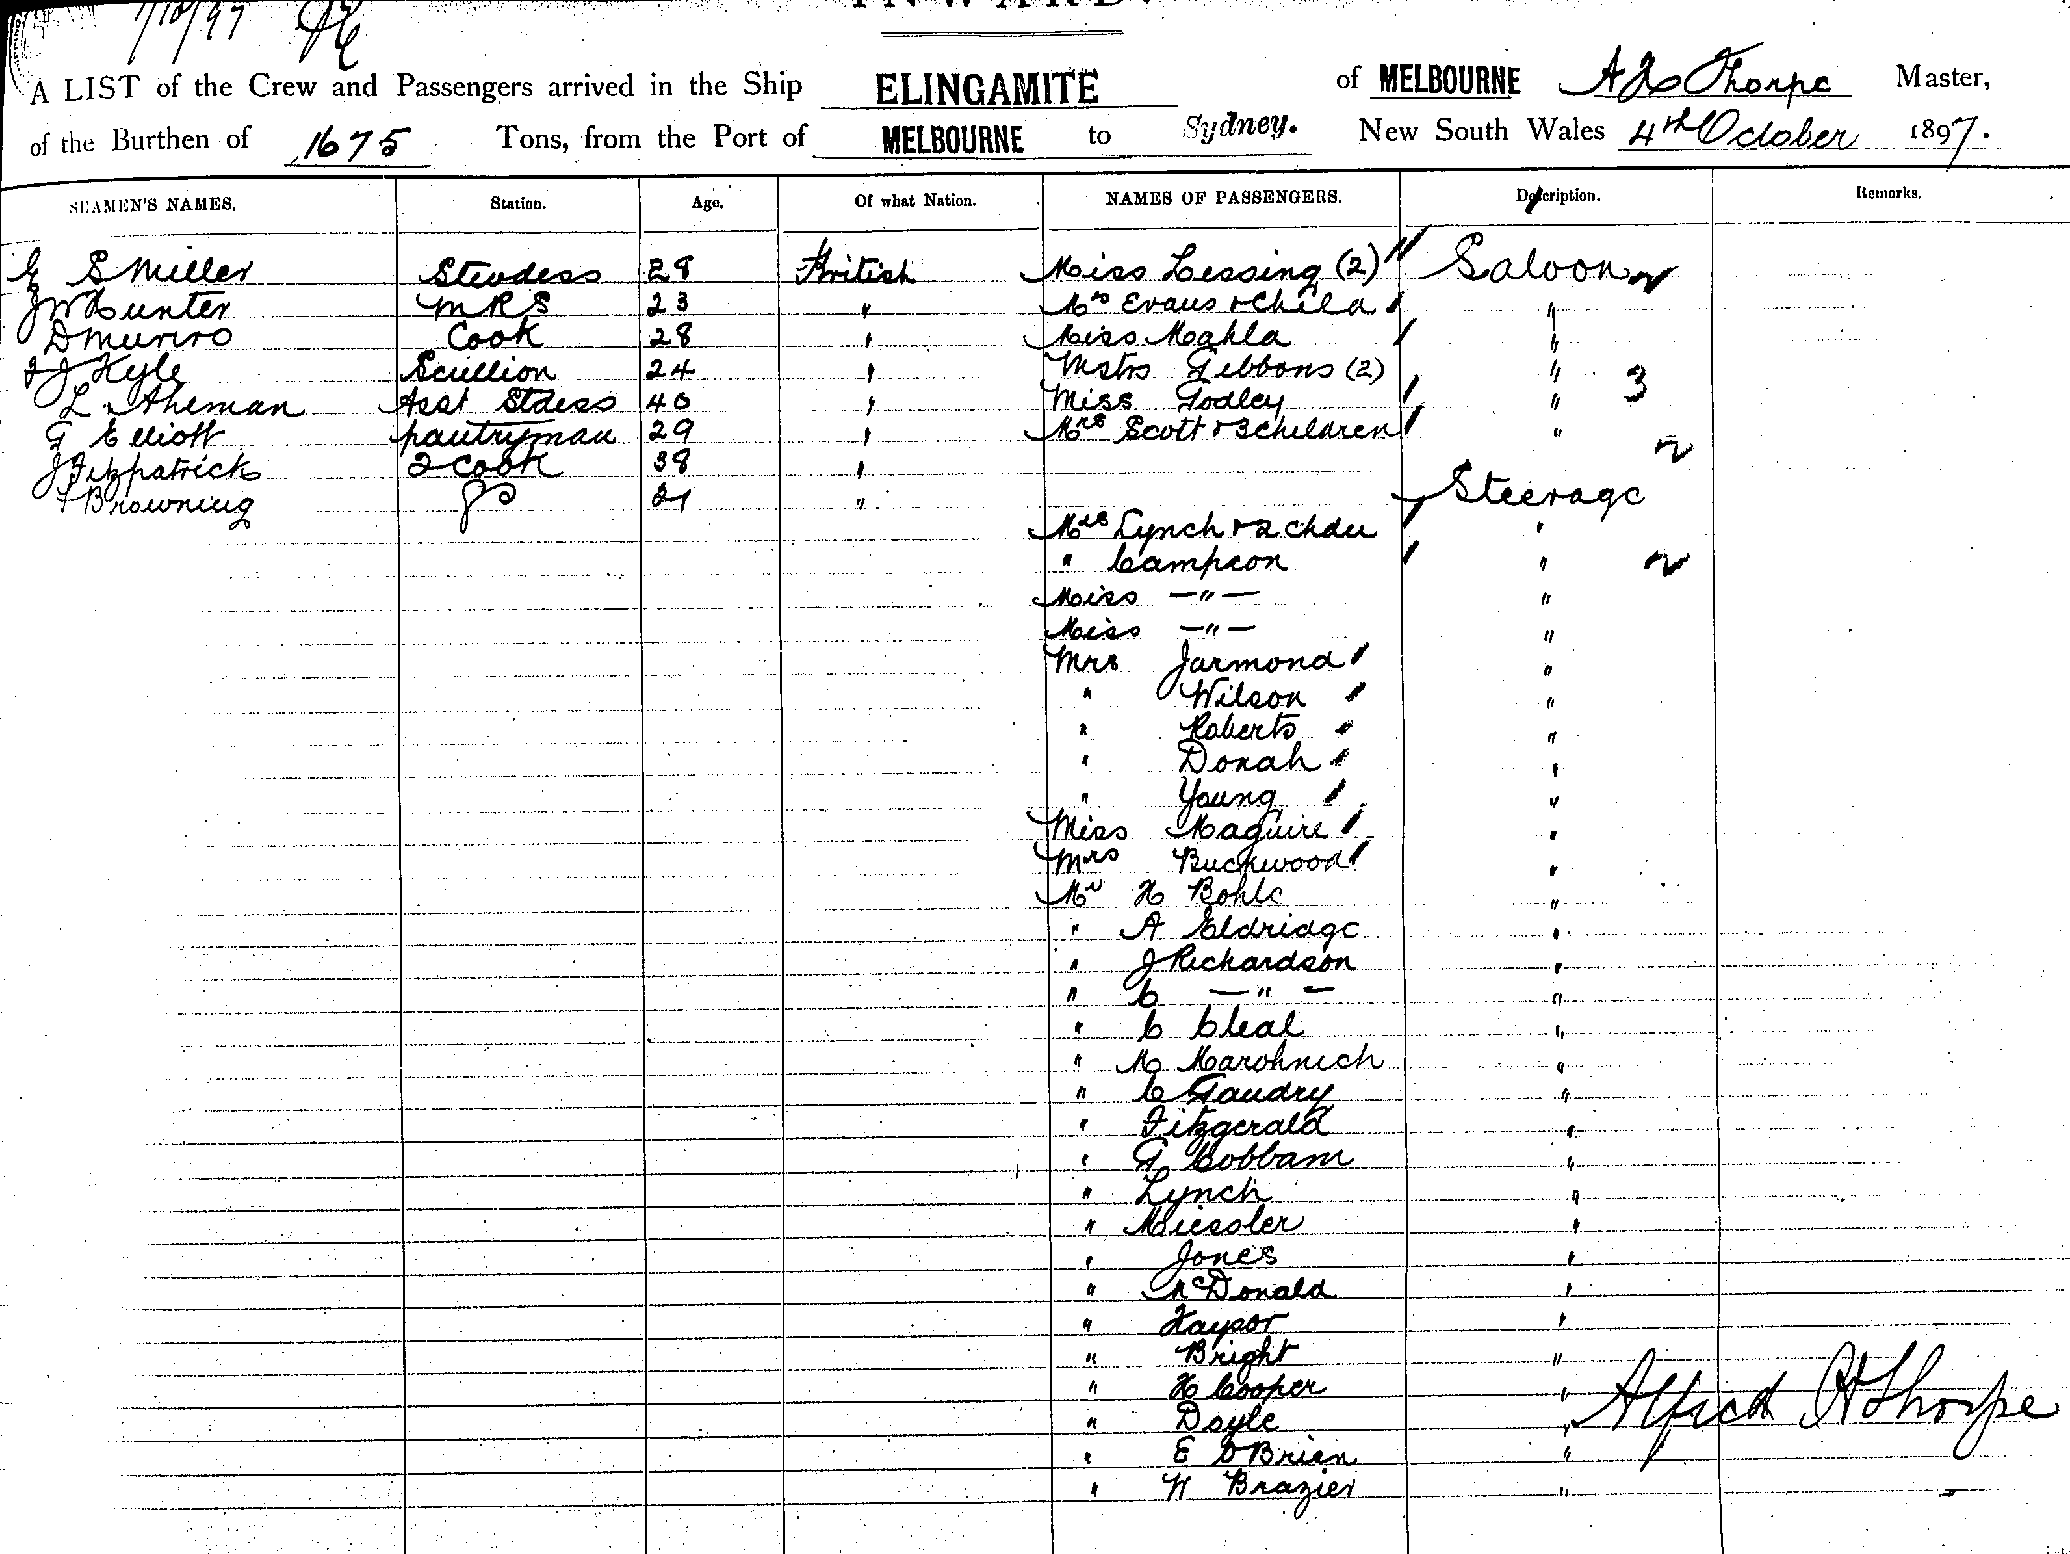 1/10/97
INWARD.
A LIST of the Crew and Passengers arrived in the Ship ELINGAMITE of MELBOURNE A H Thorpe Master,
of the Burthen of 1675 Tons, from the Port of MELBOURNE to Sydney. New South Wales 4th October 1897.
SEAMEN'S NAMES. Station. Age. Of what Nation. NAMES OF PASSENGERS. Description. Remarks.
S Miller Stwdess 28 British Miss Lessing (2) Saloon
J W Hunter MRS 23 " Mrs Evans + Child "
D Munro Cook 28 " Miss Mahla "
J Kyle Scullion 24 " Mstrs Gibbons (2) " 3
L Aheman Asst Stdess 40 " Miss Godley "
G Elliott pantryman 29 " Mrs Scott + 3 children "
J Fitzpatrick 2 Cook 38 "
F Browning 21 " Steerage
Mrs Lynch + 2 chdn "
" Campion "
Miss —"— "
Miss —"— "
Mrs Jarmond "
" Wilson "
" Roberts "
" Donah "
" Young "
Miss Maguire "
Mrs Buckwood "
Mr H Bohle "
" A Eldridge "
" J Richardson "
" C —"— "
" C Cleal "
" M Marohnich "
" C Gaudry "
" Fitzgerald "
" G Cobbam "
" Lynch "
" Miessler "
" Jones "
" McDonald "
" Kaysor "
" Bright "
" H Cooper " Alfred H Thorpe
" Doyle "
" E O'Brien "
" W Brazier "